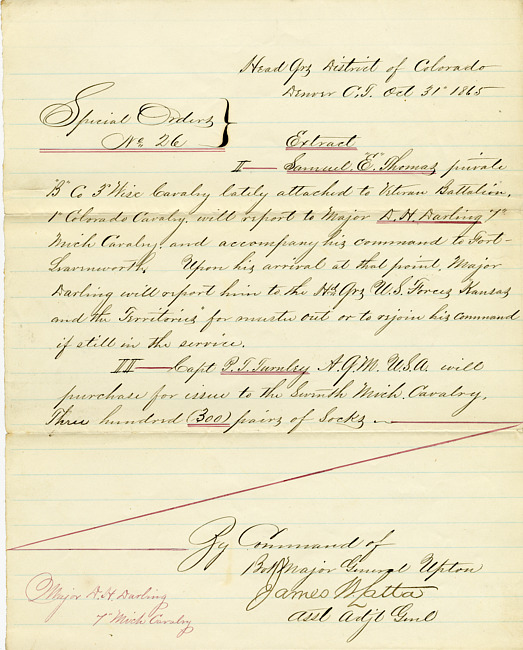 Head Qrs District of Colorado
Denver C.T. Oct 31st 1865
Special Orders }
No 26
Extract
II — Samuel "E" Thomas, private
"B" Co 3d Wisc Cavalry lately attached to Vetran Battalion,
1st Colorado Cavalry, will report to Major D. H. Darling 7th
Mich Cavalry, and accompany his command to Fort
Leavenworth. Upon his arrival at that point, Major
Darling will report him to the Hd Qrs U.S. Forces Kansas
and the Territories" for muster out or to rejoin his command
if still in the service.
III — Capt P. T. Turnley A.Q.M. U.S.A. will
purchase for issue to the Seventh Mich. Cavalry,
Three hundred (300) pairs of Socks
By Command of
Bvt Major General Upton
James W Latta
Asst Adjt Genl
Major D. H. Darling
7th Mich Cavalry